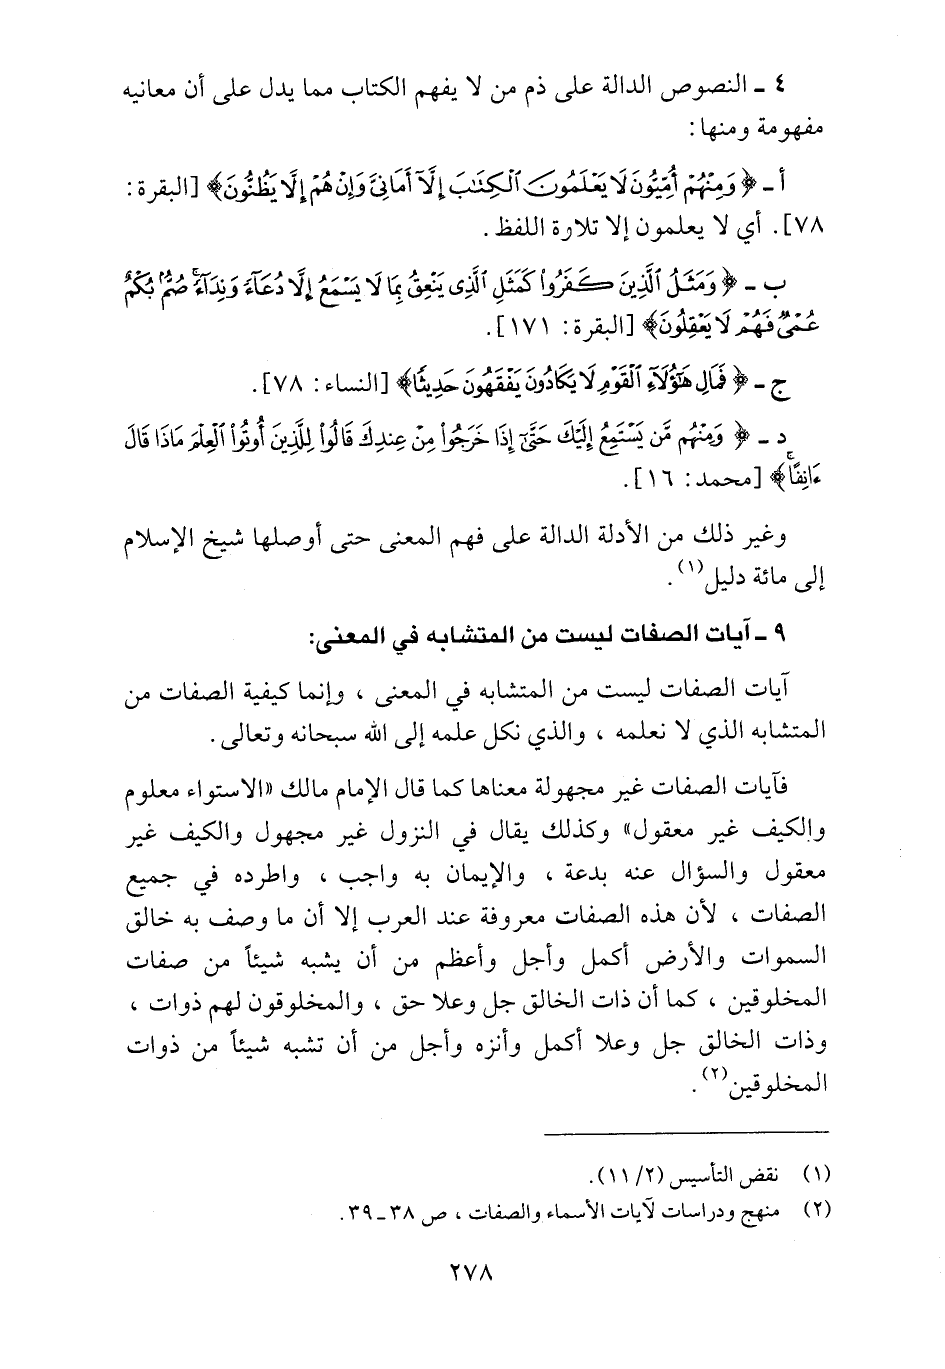 ٤ ـ النصوص الدالة على ذم من لا يفهم الكتاب مما يدل على أن معانيه
مفهومة ومنها:
أ ـ ﴿وَمِنْهُمْ أُمِّيُّونَ لَا يَعْلَمُونَ ٱلْكِتَٰبَ إِلَّآ أَمَانِىَّ وَإِنْ هُمْ إِلَّا يَظُنُّونَ﴾ [البقرة:
٧٨]. أي لا يعلمون إلا تلاوة اللفظ.
ب ـ ﴿وَمَثَلُ ٱلَّذِينَ كَفَرُوا۟ كَمَثَلِ ٱلَّذِى يَنْعِقُ بِمَا لَا يَسْمَعُ إِلَّا دُعَآءً وَنِدَآءً ۚ صُمٌّۢ بُكْمٌ
عُمْىٌ فَهُمْ لَا يَعْقِلُونَ﴾ [البقرة: ١٧١].
ج ـ ﴿فَمَالِ هَٰٓؤُلَآءِ ٱلْقَوْمِ لَا يَكَادُونَ يَفْقَهُونَ حَدِيثًا﴾ [النساء: ٧٨].
د ـ ﴿وَمِنْهُم مَّن يَسْتَمِعُ إِلَيْكَ حَتَّىٰٓ إِذَا خَرَجُوا۟ مِنْ عِندِكَ قَالُوا۟ لِلَّذِينَ أُوتُوا۟ ٱلْعِلْمَ مَاذَا قَالَ
ءَانِفًا ۚ﴾ [محمد: ١٦].
وغير ذلك من الأدلة الدالة على فهم المعنى حتى أوصلها شيخ الإسلام
إلى مائة دليل(١).
٩ ـ آيات الصفات ليست من المتشابه في المعنى:
آيات الصفات ليست من المتشابه في المعنى ، وإنما كيفية الصفات من
المتشابه الذي لا نعلمه ، والذي نكل علمه إلى الله سبحانه وتعالى.
فآيات الصفات غير مجهولة معناها كما قال الإمام مالك «الاستواء معلوم
والكيف غير معقول» وكذلك يقال في النزول غير مجهول والكيف غير
معقول والسؤال عنه بدعة ، والإيمان به واجب ، واطرده في جميع
الصفات ، لأن هذه الصفات معروفة عند العرب إلا أن ما وصف به خالق
السموات والأرض أكمل وأجل وأعظم من أن يشبه شيئاً من صفات
المخلوقين ، كما أن ذات الخالق جل وعلا حق ، والمخلوقون لهم ذوات ،
وذات الخالق جل وعلا أكمل وأنزه وأجل من أن تشبه شيئاً من ذوات
المخلوقين(٢).
(١) نقض التأسيس (١١/٢).
(٢) منهج ودراسات لآيات الأسماء والصفات ، ص ٣٨ـ٣٩.
٢٧٨